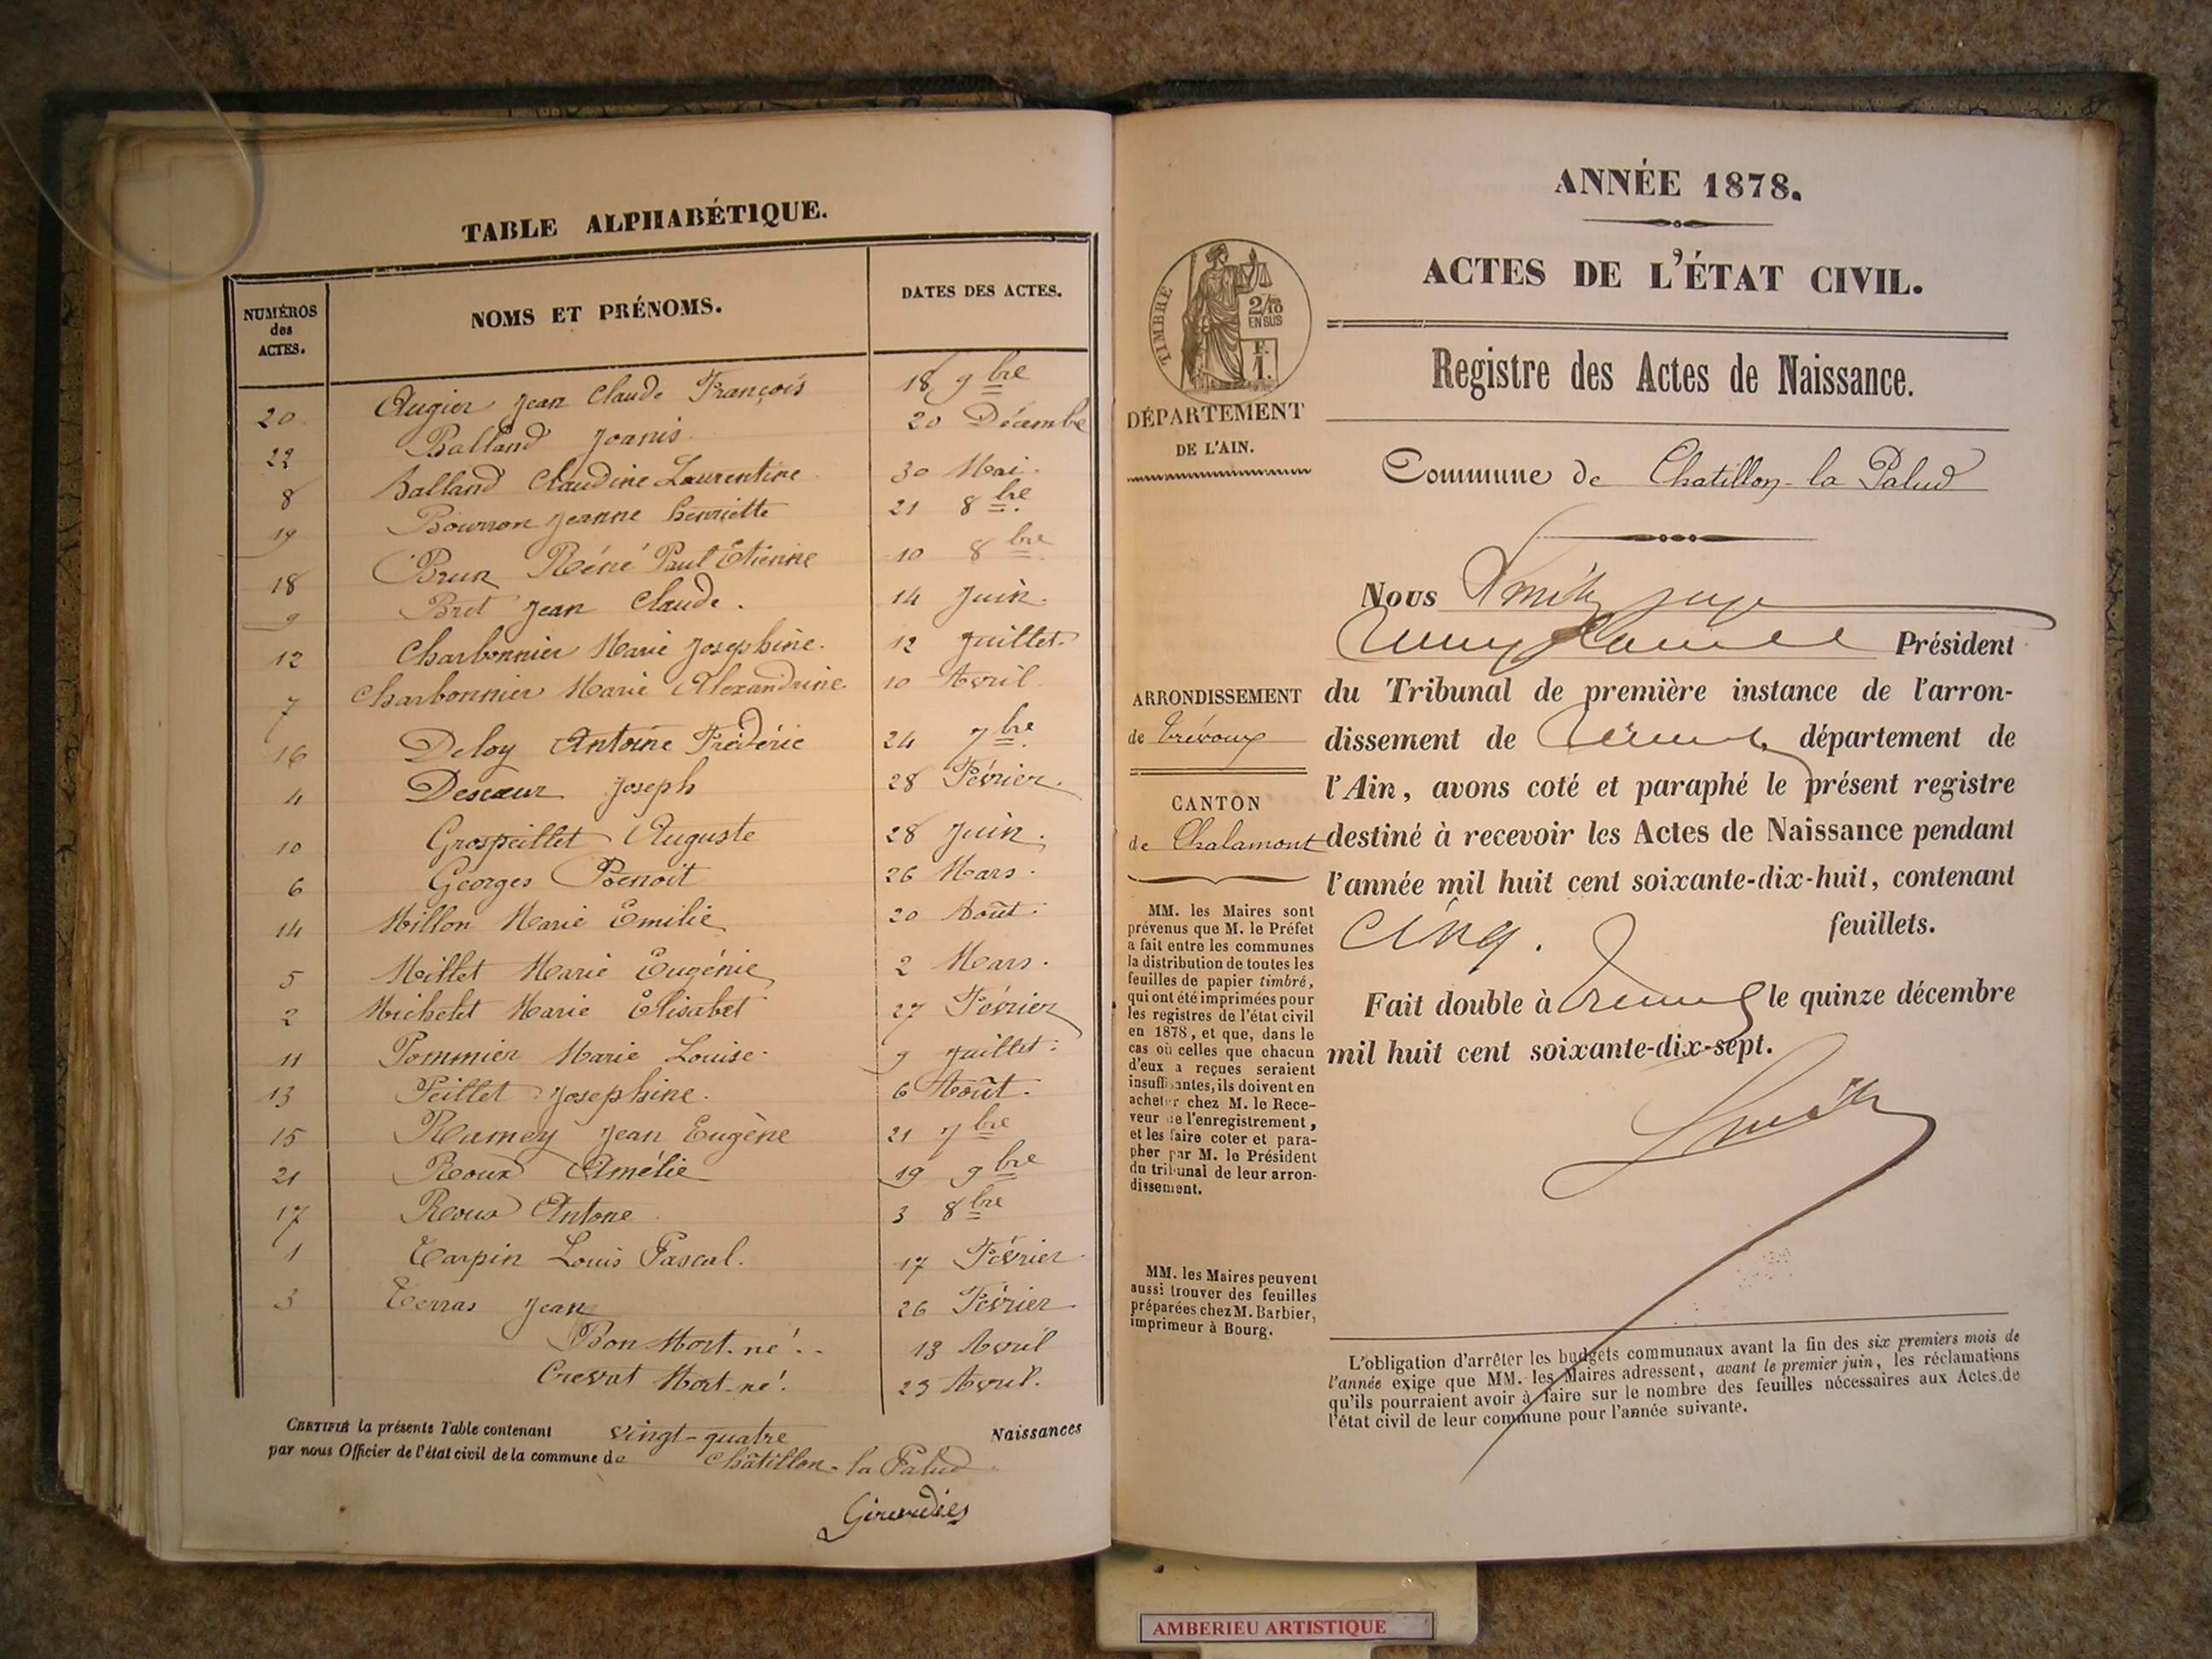 TABLE ALPHABÉTIQUE.
NUMÉROS des ACTES. NOMS ET PRÉNOMS. DATES DES ACTES.
20 Augier Jean Claude François 18 9bre
22 Balland Joanis 20 Décembre
8 Balland Claudine Laurentine 30 Mai.
19 Bourron Jeanne henriette 21 8bre.
18 Brun Réné Paul Etienne 10 8bre
9 Bret Jean Claude. 14 Juin.
12 Charbonnier Marie Josephine. 12 Juillet.
7 Charbonnier Marie Alexandrine. 10 Avril
16 Deloy Antoine Frédéric 24 7bre.
4 Descœur Joseph 28 Février.
10 Grospeillet Auguste 28 Juin.
6 Georges Benoit 26 Mars.
14 Millon Marie Emilie 20 Août.
5 Millet Marie Eugénie 2 Mars.
2 Michelet Marie Elisabet 27 Février
11 Pommier Marie Louise. 9 Juillet.
13 Peillet Josephine. 6 Août.
15 Ramey Jean Eugène 21 7bre
21 Roux Amélie 19 9bre
17 Roux Antone 3 8bre
1 Tarpin Louis Pascal. 17 Février
3 Terras Jean 26 Février.
Bon Mort-né!.. 13 Avril
Crevat Mort-né! 23 Avril.
CERTIFIÉ la présente Table contenant vingt-quatre Naissances
par nous Officier de l'état civil de la commune de Châtillon-la Palud
ANNÉE 1878.
ACTES DE L'ÉTAT CIVIL.
TIMBRE
2/10
EN SUS
F.
1.
DÉPARTEMENT
DE L'AIN.
Registre des Actes de Naissance.
Commune de Chatillon-la Palud
ARRONDISSEMENT
de Trévoux
CANTON
de Chalamont
MM. les Maires sont
prévenus que M. le Préfet
a fait entre les communes
la distribution de toutes les
feuilles de papier timbré,
qui ont été imprimées pour
les registres de l'état civil
en 1878, et que, dans le
cas où celles que chacun
d'eux a reçues seraient
insuffisantes, ils doivent en
acheter chez M. le Rece-
veur de l'enregistrement,
et les faire coter et para-
pher par M. le Président
du tribunal de leur arron-
dissement.
MM. les Maires peuvent
aussi trouver des feuilles
préparées chez M. Barbier,
imprimeur à Bourg.
Nous Smith juge
Président
du Tribunal de première instance de l'arron-
dissement de Trévoux département de
l'Ain, avons coté et paraphé le présent registre
destiné à recevoir les Actes de Naissance pendant
l'année mil huit cent soixante-dix-huit, contenant
Cinq. feuillets.
Fait double à Trévoux le quinze décembre
mil huit cent soixante-dix-sept.
Smith
L'obligation d'arrêter les budgets communaux avant la fin des six premiers mois de
l'année exige que MM. les Maires adressent, avant le premier juin, les réclamations
qu'ils pourraient avoir à faire sur le nombre des feuilles nécessaires aux Actes de
l'état civil de leur commune pour l'année suivante.
AMBERIEU ARTISTIQUE